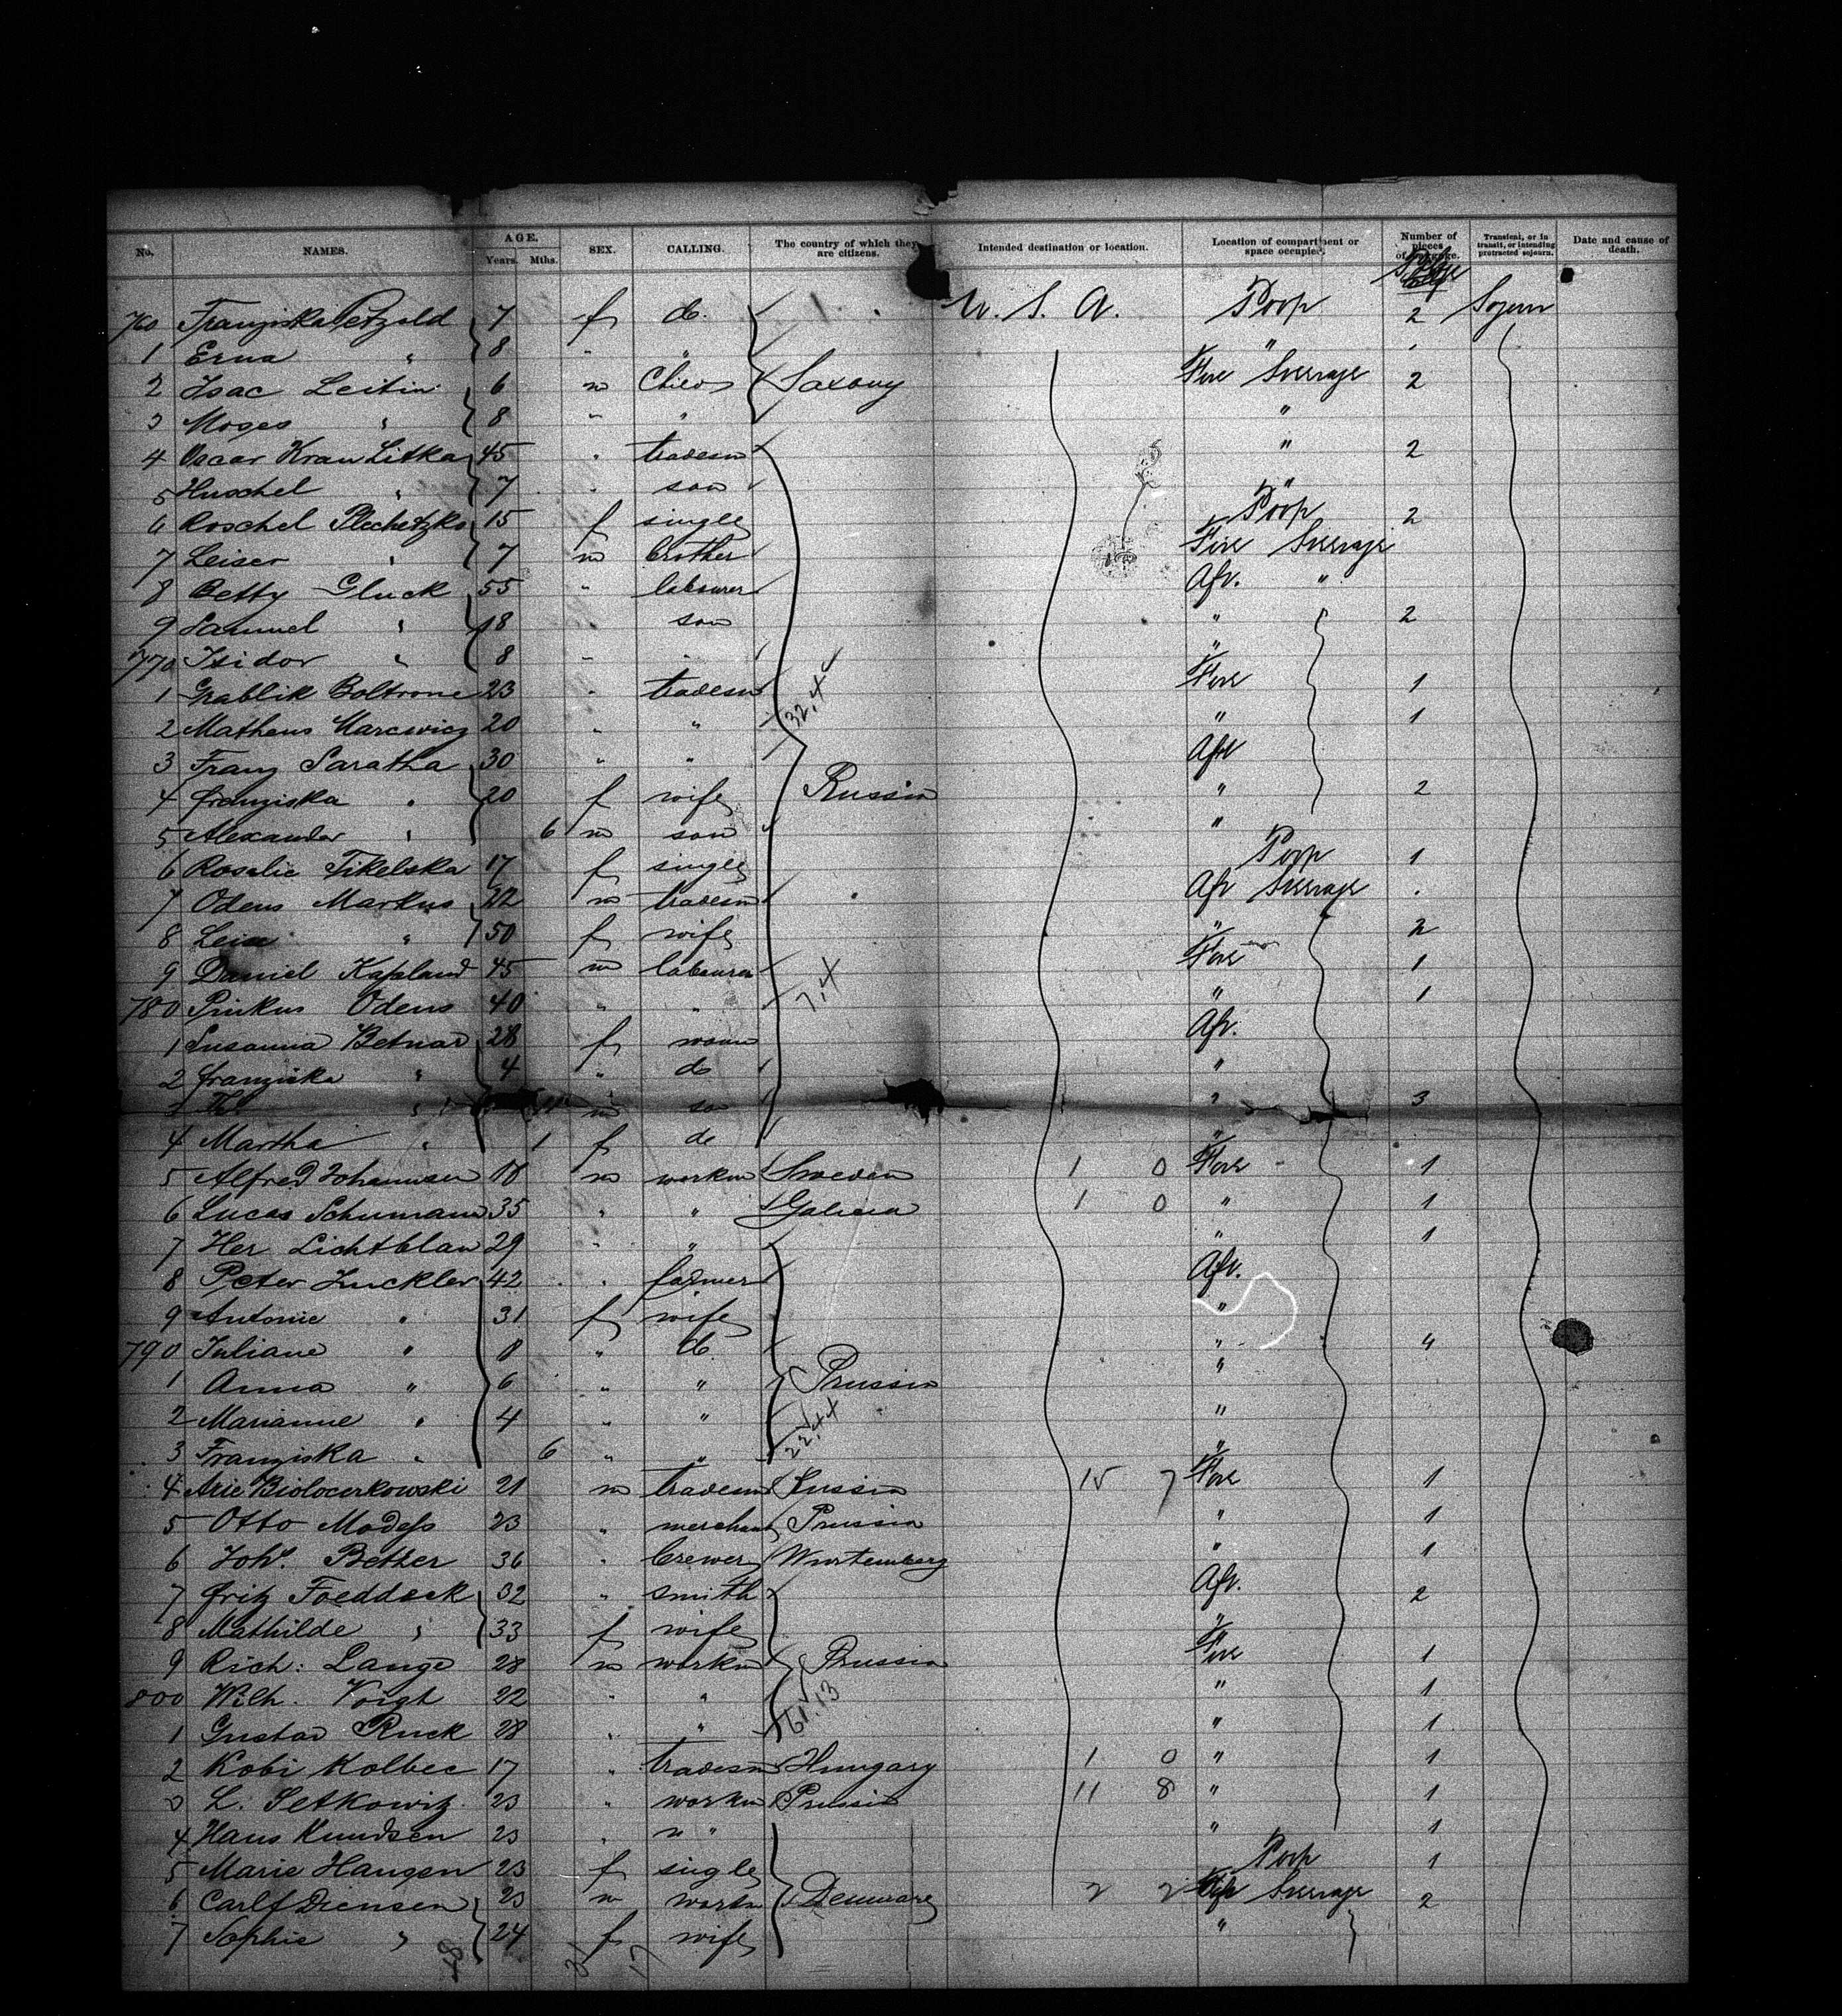 No. NAMES. AGE. Years. Mths. SEX. CALLING. The country of which they are citizens. Intended destination or location. Location of compartment or space occupied. Number of pieces of baggage. Transient, or in transit, or intending protracted sojourn. Date and cause of death.
760 Franziska Petzold 7 f do. U. S. A. Poop 2 Sojourn
1 Erna " 8 " " "
2 Isac Leitin 6 m Child Saxony Fore Steerage 2
3 Moses " 8 " " "
4 Oscar Kran Litka 45 " tradesm " 2
5 Huschel " 7 " son "
6 Roschel Plechetzka 15 f single Poop 2
7 Leiser " 7 m brother Fore Steerage
8 Betty Gluck 55 " labourer Aft. "
9 Samuel " 18 son " 2
770 Isidor " 8 " " "
1 Grablik Boltrone 23 " tradesm Fore 1
2 Matheus Marcwicz 20 " " " 1
32,4
3 Franz Saratha 30 " " Aft
4 Franziska " 20 f wife Russia " 2
5 Alexander " 6 m son "
6 Rosalie Fikelska 17 f single Poop 1
7 Odens Markus 22 m tradesm Aft Steerage
8 Leia " 50 f wife " 2
9 Daniel Kapland 45 m labourer Fore 1
7,4
780 Pinkus Odens 40 " " " 1
1 Susanna Betnad 28 f woan Aft.
2 Franziska " 4 " do "
3 " m so " 3
4 Martha " 1 f do "
5 Alfred Johannsen 18 m workm Sweden 1 0 Fore 1
6 Lucas Schumann 35 " " Galicia 1 0 " 1
7 Her Lichtblau 29 " " " 1
8 Peter Luckler 42 " farmer Aft.
9 Antonie " 31 f wife "
790 Juliane " 8 " do " 4
1 Anna " 6 " " Prussia "
2 Marianne " 4 " " "
22,44
3 Franziska " 6 " " "
4 Arie Biolocerkowski 21 m tradesm Russia 15 7 Fore 1
5 Otto Modess 23 " merchant Prussia " 1
6 Joh. Bether 36 " brewer Wurtemberg " 1
7 Fritz Foeddeck 32 " smith Aft. 2
8 Mathilde " 33 f wife "
9 Rich: Lange 28 m workm Prussia Fore 1
800 Wilh. Voigt 22 " " " 1
61.13
1 Gustav Ruck 28 " " " 1
2 Kobi Kolbec 17 " tradesm Hungary 1 0 " 1
3 L. Setkowitz 23 " workm Prussia 11 8 " 1
4 Hans Knudsen 23 " " " 1
5 Marie Hangen 23 f single Poop 1
6 Carl Diensen 23 m workm Denmark 2 2 Aft Steerage 2
7 Sophie " 24 f wife "
31 17